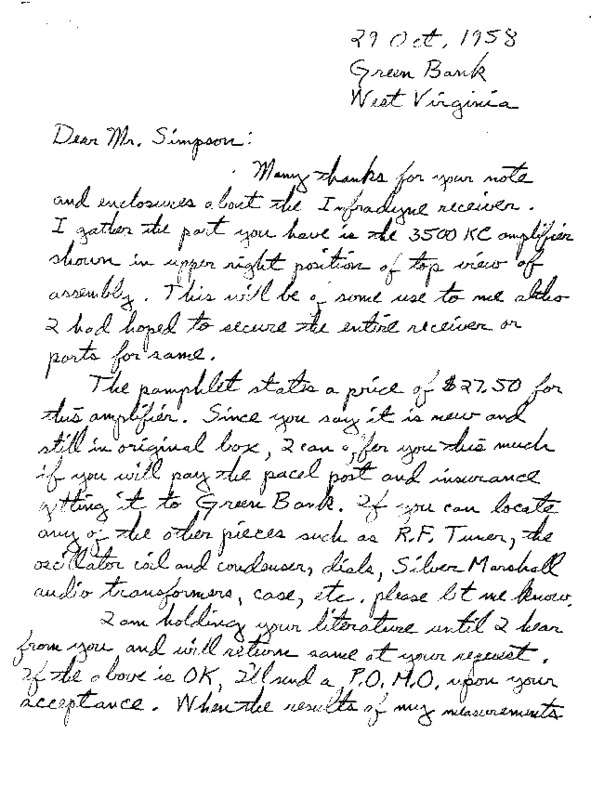 29 Oct, 1958
Green Bank
West Virginia
Dear Mr. Simpson:
Many thanks for your note
and enclosures about the Infradyne receiver.
I gather the part you have is the 3500 KC amplifier
shown in upper right position of top view of
assembly. This will be of some use to me altho
I had hoped to secure the entire receiver or
parts for same.
The pamphlet states a price of $27.50 for
this amplifier. Since you say it is new and
still in original box, I can offer you this much
if you will pay the pacel post and insurance
getting it to Green Bank. If you can locate
any of the other pieces such as R.F. Tuner, the
oscillator coil and condenser, dials, Silver Marshall
audio transformers, case, etc. please let me know.
I am holding your literature until I hear
from you and will return same at your request.
If the above is OK, I'll send a P.O. M.O. upon your
acceptance. When the results of my measurements